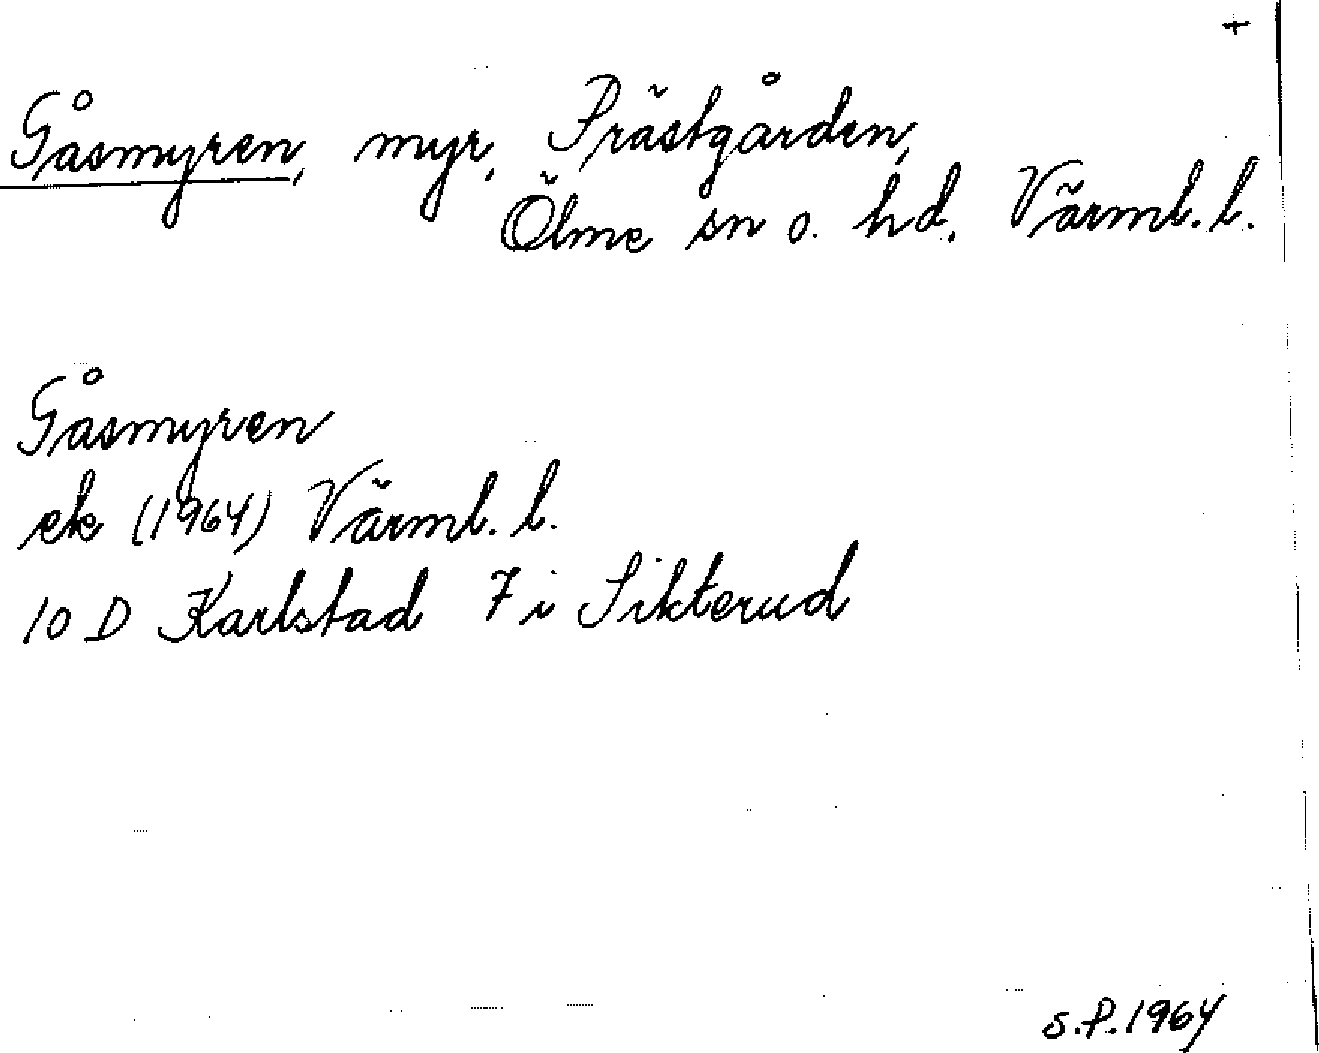 +
Gåsmyren, myr, Prästgården,
Ölme sn o. hd, Värml. l.
Gåsmyren
ek (1964) Värml. l.
10 D Karlstad 7 i Sikterud
S.P. 1964